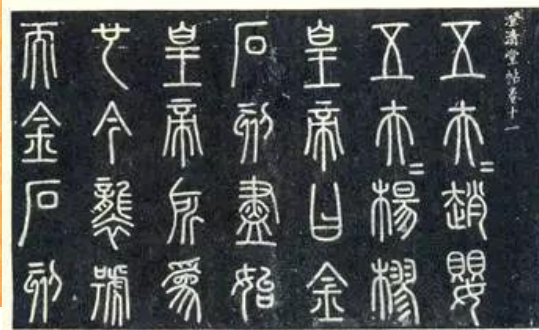 澄清堂帖卷十一
五夫=趙嬰
五夫=楊樛
皇帝曰金
石刻盡始
皇帝所爲
也今襲號
而金石刻